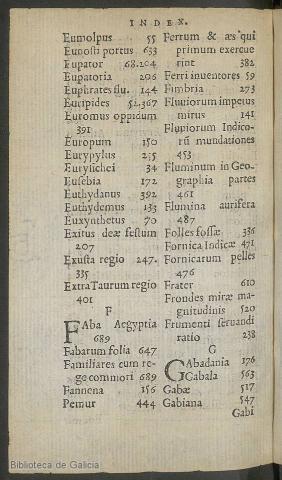 INDEX.
Eumolpus 55
Eunosti portus 633
Eupator 68.204
Eupatoria 206
Euphrates flu. 144
Euripides 52.367
Euromus oppidum
391
Europum 150
Eurypylus 235
Eurysichei 34
Eusebia 172
Euthydanus 392
Euthydemus 133
Euxynthetus 70
Exitus deæ festum
207
Exusta regio 247.
335
Extra Taurum regio
401
F
FAba Aegyptia
689
Fabarum folia 647
Familiares cum re-
ge commori 689
Fannena 156
Femur 444
Ferrum & æs qui
primum exercue
rint 382
Ferri inuentores 59
Fimbria 273
Fluuiorum impetus
mirus 141
Fluuiorum Indico-
rũ inundationes
453
Fluminum in Geo-
graphia partes
461
Flumina aurifera
487
Folles fossæ 336
Fornica Indicæ 471
Fornicarum pelles
476
Frater 610
Frondes miræ ma-
gnitudinis 520
Frumenti seruandi
ratio 238
G
GAbadania 176
Gabala 563
Gabæ 517
Gabiana 547
Gabi
Biblioteca de Galicia